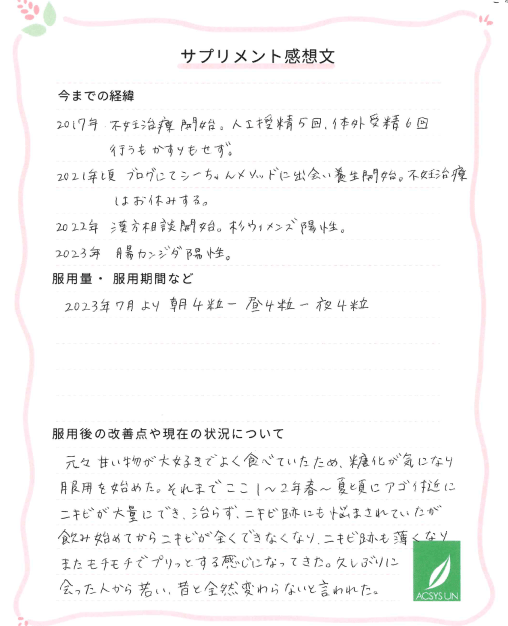 サプリメント感想文
今までの経緯
2017年 不妊治療開始。人工授精5回、体外受精6回
行うもかすりもせず。
2021年頃 ブログにてシーちゃんメソッドに出会い養生開始。不妊治療
はお休みする。
2022年 漢方相談開始。杉ウィメンズ陽性。
2023年 腸カンジダ陽性。
服用量・ 服用期間など
2023年7月より 朝4粒ー昼4粒ー夜4粒
服用後の改善点や現在の状況について
元々甘い物が大好きでよく食べていたため、糖化が気になり
服用を始めた。それまでここ1〜2年春〜夏頃にアゴ付近に
ニキビが大量にでき、治らず、ニキビ跡にも悩まされていたが
飲み始めてからニキビが全くできなくなり、ニキビ跡も薄くなり
またモチモチでプリっとする感じになってきた。久しぶりに
会った人から若い、昔と全然変わらないと言われた。
ACSYS UN